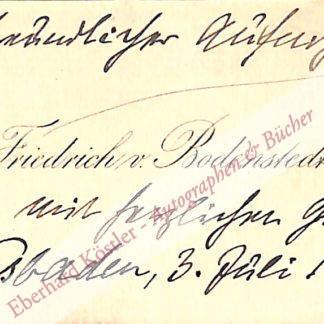 freundlicher Aufnah
Friedrich v. Bodenstedt
mit herzlichen G
sbaden, 3. Juli 1
Eberhard Köstler - Autographen & Bücher